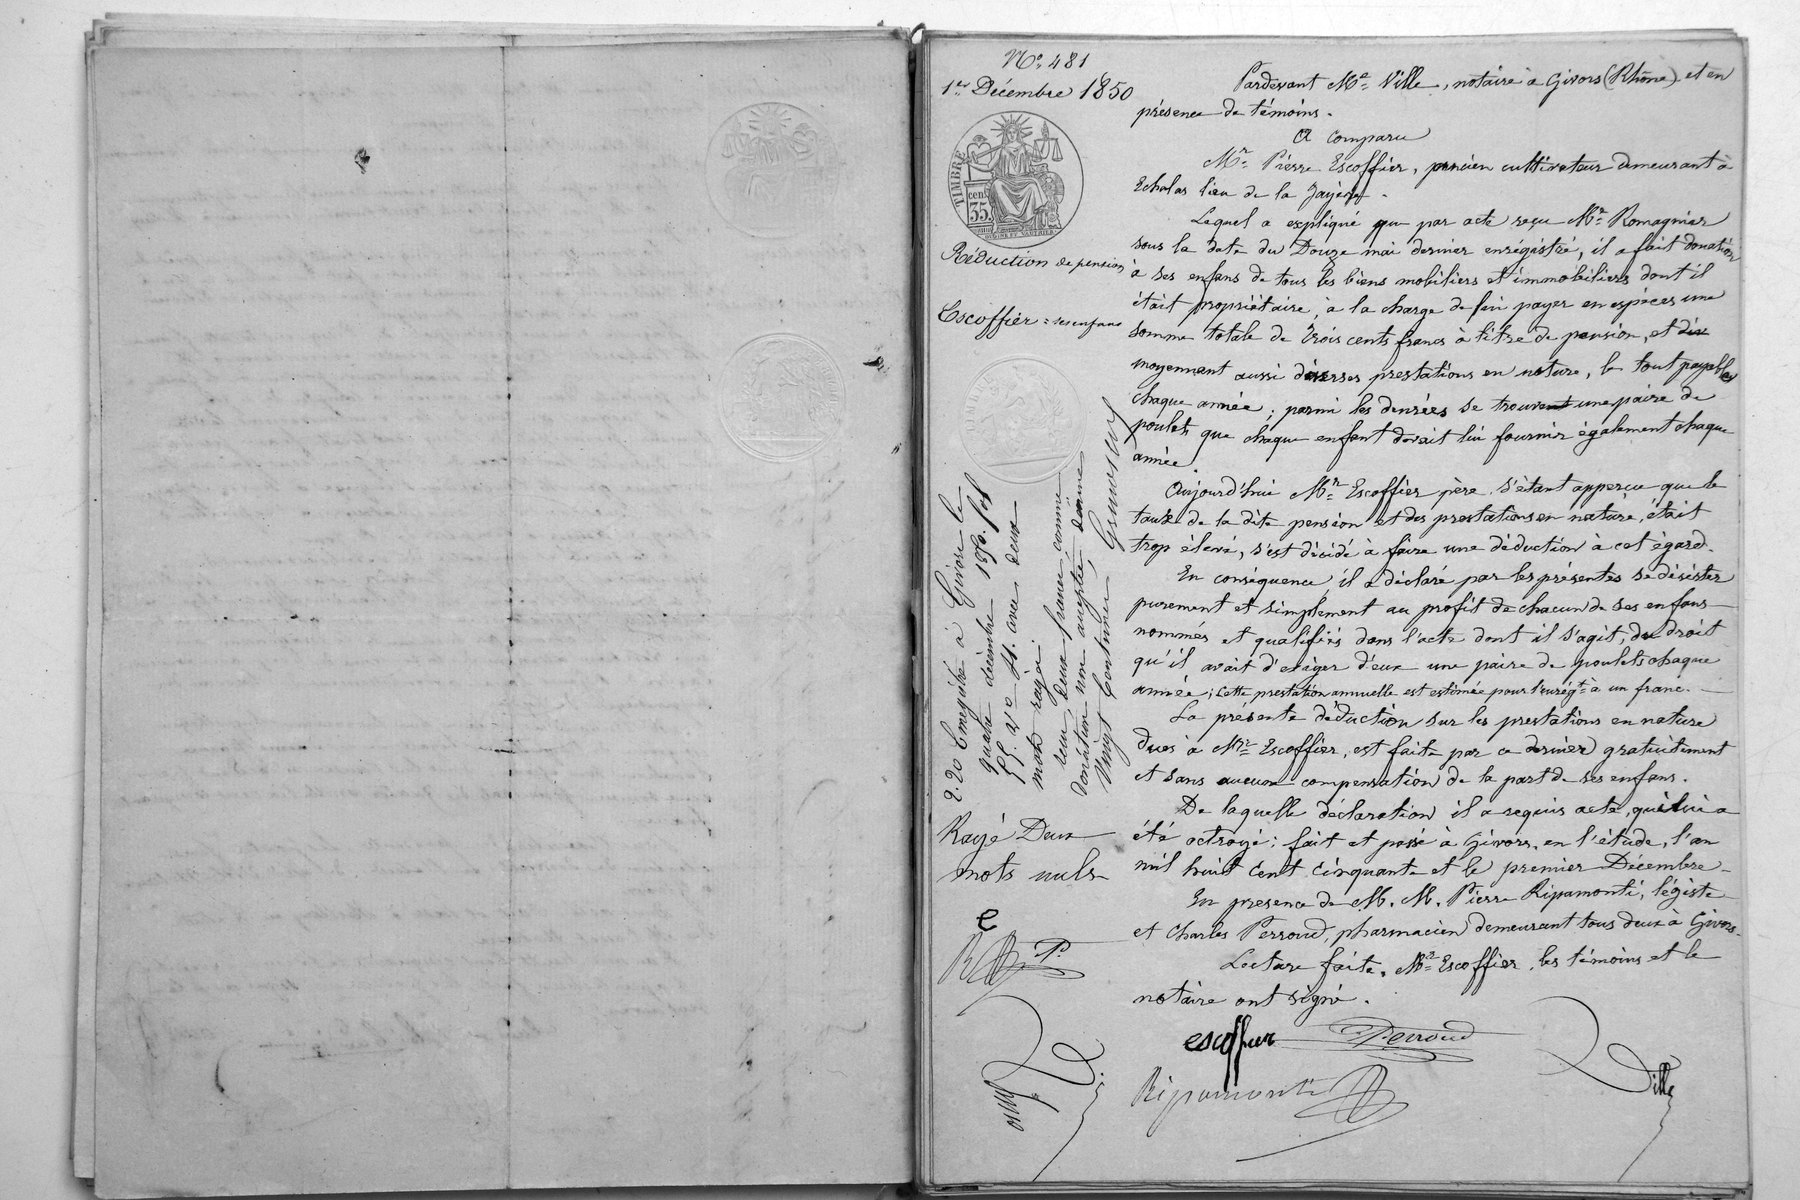 N° 481
1er Décembre 1850
TIMBRE
cent.
35.
Réduction de pension
Escoffier = ses enfans
Pardevant Me Ville, notaire à Givors (Rhône) et en
présence de témoins.
A comparu
Mr Pierre Escoffier, ancien cultivateur demeurant à
Echalas lieu de la
Lequel a expliqué que par acte reçu Mr Romagnier
sous la date du Douze mai dernier enrégistré, il a fait donation
à ses enfans de tous les biens mobiliers et immobiliers dont il
était propriétaire, à la charge de lui payer en espèces une
somme totale de trois cents francs à titre de pension, et div
moyennant aussi diverses prestations en nature, le tout payables
chaque année ; parmi les denrées se trouvent une paire de
poulets que chaque enfant devait lui fournir également chaque
année.
Aujourd'hui Mr Escoffier père, s'étant apperçu que le
taux de la dite pension et des prestations en nature, était
trop élevé, s'est décidé à faire une déduction à cet égard.
En conséquence, il a déclaré par les présentes se désister
purement et simplement au profit de chacun de ses enfans
nommés et qualifiés dans l'acte dont il s'agit, du droit
qu'il avait d'exiger d'eux une paire de poulets chaque
année ; cette prestation annuelle est estimée pour l'enrégt à un franc.
La présente déduction sur les prestations en nature
dues à Mr Escoffier, est faite par ce dernier gratuitement
et sans aucune compensation de la part de ses enfans.
De laquelle déclaration il a requis acte, qui lui a
été octroyé : fait et passé à Givors, en l'étude, l'an
mil huit cent cinquante et le premier Décembre
En presence de M. M. Pierre Ripamonti, légiste
et Charles Perroud, pharmacien demeurant tous deux à Givors.
Lecture faite, Mr Escoffier, les témoins et le
notaire ont signé.
escoffier
Perroud
Ripamonti
Ville
Enregistré à Givors le
quatre décembre 1850. fol
avec deux
mots rayés.
reçu deux francs comme
donation non acceptée, décime
vingt centimes
Rayé Deux
mots nuls
e
R
P.